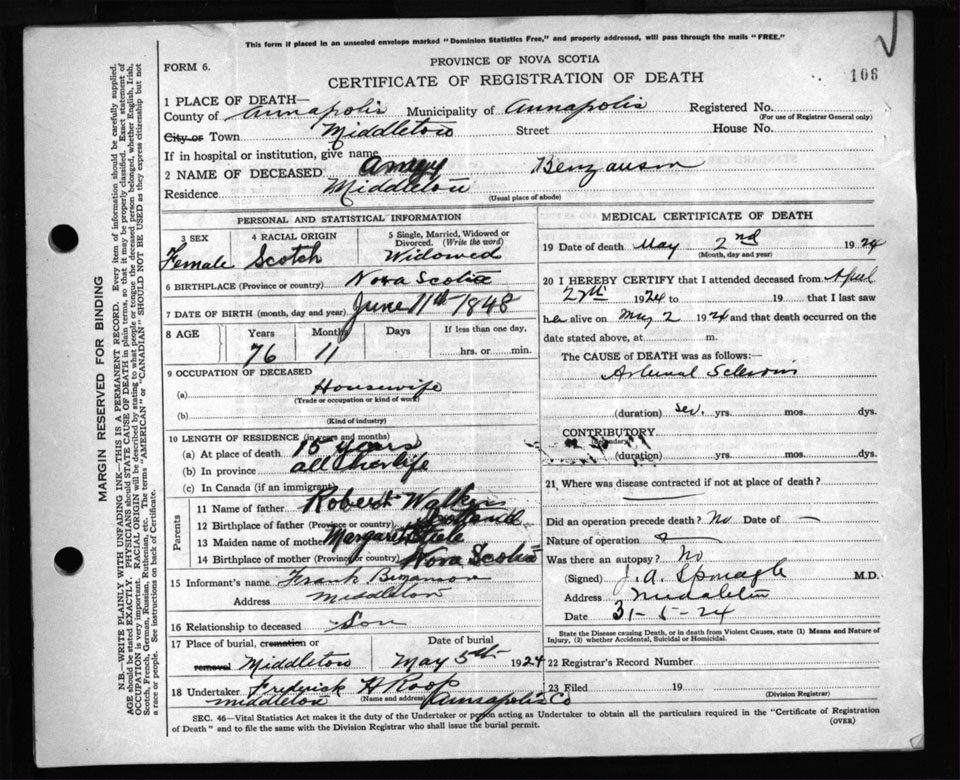 This form if placed in an unsealed envelope marked "Dominion Statistics Free," and properly addressed, will pass through the mails "FREE."
PROVINCE OF NOVA SCOTIA
FORM 6.
CERTIFICATE OF REGISTRATION OF DEATH
106
1 PLACE OF DEATH—
County of Annapolis Municipality of Annapolis Registered No.
(For use of Registrar General only)
City or Town Middleton Street House No.
If in hospital or institution, give name
2 NAME OF DECEASED
Residence Middleton
(Usual place of abode)
PERSONAL AND STATISTICAL INFORMATION
3 SEX Female
4 RACIAL ORIGIN Scotch
5 Single, Married, Widowed or Divorced. (Write the word) Widowed
6 BIRTHPLACE (Province or country) Nova Scotia
7 DATE OF BIRTH (month, day and year) June 11th 1848
8 AGE Years Months Days If less than one day,
76 11 hrs. or min.
9 OCCUPATION OF DECEASED
(a) Housewife
(Trade or occupation or kind of work)
(b)
(Kind of industry)
10 LENGTH OF RESIDENCE (in years and months)
(a) At place of death 15 years
(b) In province all her life
(c) In Canada (if an immigrant)
Parents
11 Name of father Robert Walker
12 Birthplace of father (Province or country) Scotland
13 Maiden name of mother Margaret Steele
14 Birthplace of mother (Province or country) Nova Scotia
15 Informant's name Frank Bezanson
Address Middleton
16 Relationship to deceased Son
17 Place of burial, cremation or removal Middleton
Date of burial May 5th 1924
18 Undertaker Fredrick H Roop
(Name and address)
Middleton Annapolis Co
MEDICAL CERTIFICATE OF DEATH
19 Date of death May 2nd 1924
(Month, day and year)
20 I HEREBY CERTIFY that I attended deceased from April
1924 to 19 that I last saw
her alive on May 2 1924 and that death occurred on the
date stated above, at m.
The CAUSE of DEATH was as follows:—
Arterial Sclerosis
(duration) sev. yrs. mos. dys.
CONTRIBUTORY
(Secondary)
(duration) yrs. mos. dys.
21. Where was disease contracted if not at place of death?
Did an operation precede death? No Date of —
Nature of operation
Was there an autopsy? No
(Signed) J. A. Sponagle M.D.
Address Middleton
Date 31-5-24
State the Disease causing Death, or in death from Violent Causes, state (1) Means and Nature of
Injury, (2) whether Accidental, Suicidal or Homicidal.
22 Registrar's Record Number
23 Filed 19
(Division Registrar)
SEC. 46—Vital Statistics Act makes it the duty of the Undertaker or person acting as Undertaker to obtain all the particulars required in the "Certificate of Registration
of Death" and to file the same with the Division Registrar who shall issue the burial permit.
(OVER)
MARGIN RESERVED FOR BINDING
N.B.—WRITE PLAINLY WITH UNFADING INK—THIS IS A PERMANENT RECORD. Every item of information should be carefully supplied.
AGE should be stated EXACTLY. PHYSICIANS should STATE CAUSE OF DEATH in plain terms, so that it may be properly classified. Exact statement of
OCCUPATION is very important. RACIAL ORIGIN will be described by stating to what people or tongue the deceased person belonged, whether English, Irish,
Scotch, French, German, Russian, Ruthenian, etc. The terms "AMERICAN" or "CANADIAN" SHOULD NOT BE USED as they express citizenship but not
a race or people. See instructions on back of Certificate.